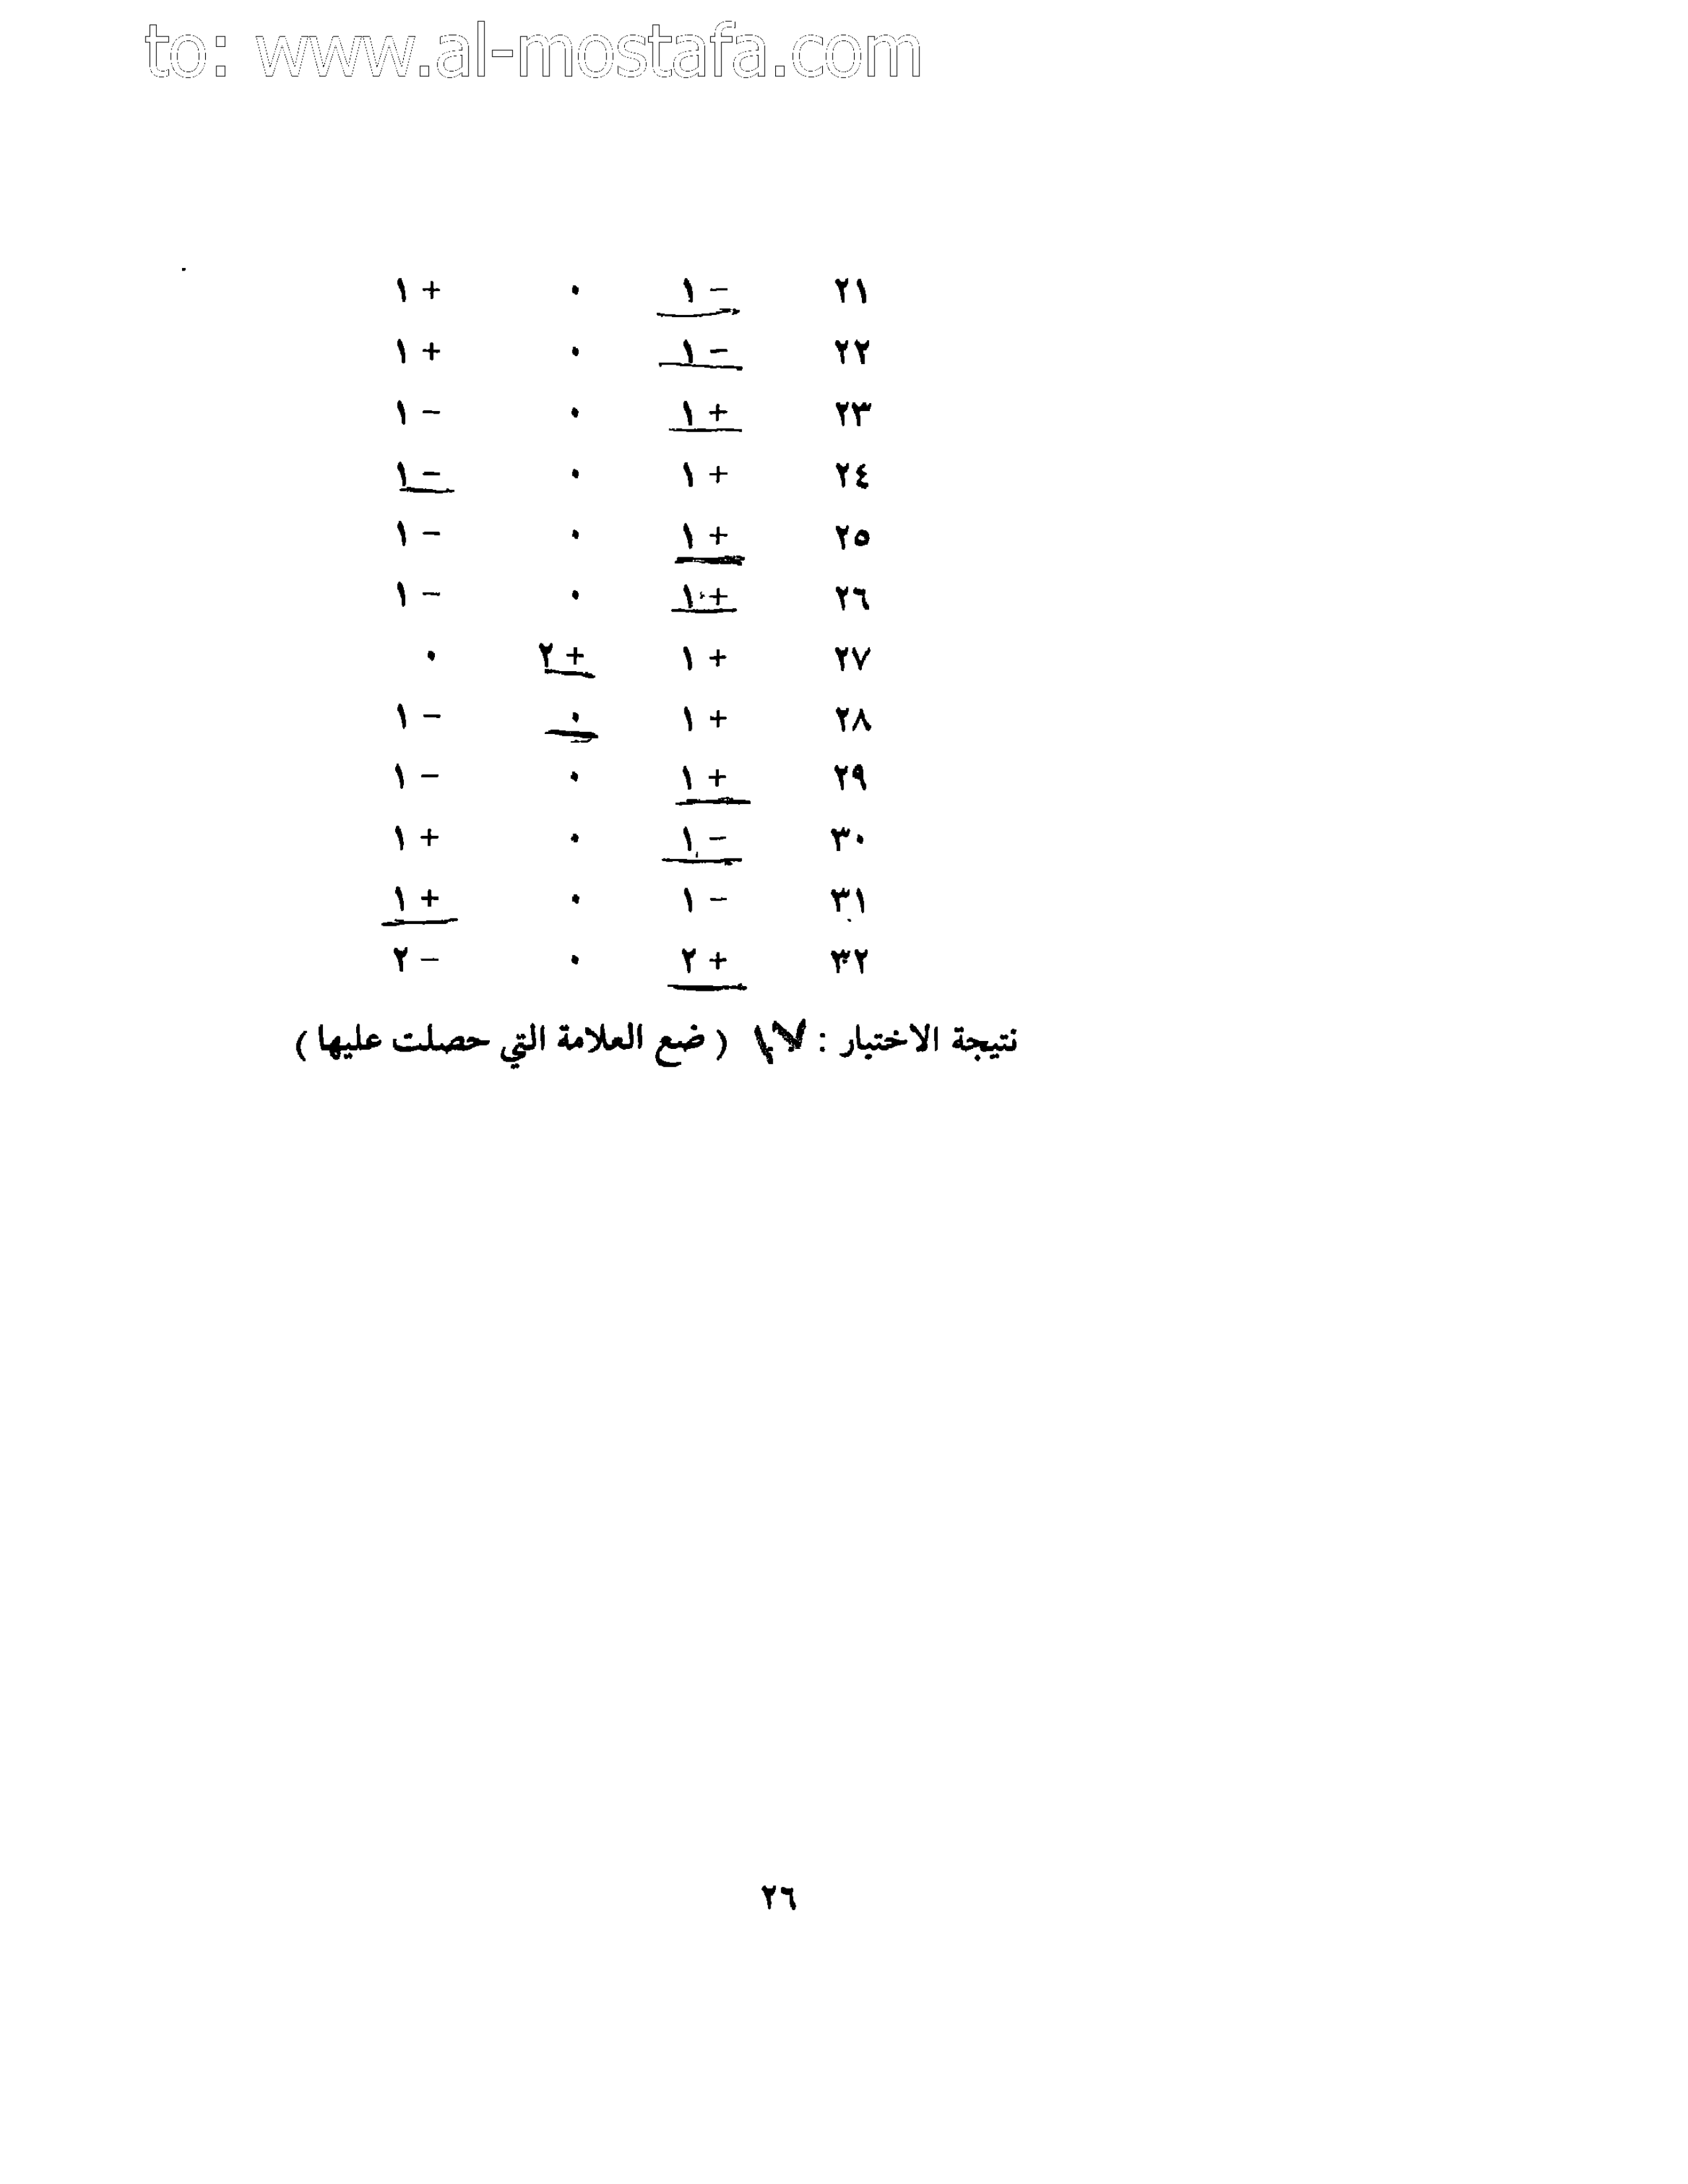 to: www.al-mostafa.com
٢١ - ١ ٠ + ١
٢٢ - ١ ٠ + ١
٢٣ + ١ ٠ - ١
٢٤ + ١ ٠ - ١
٢٥ + ١ ٠ - ١
٢٦ + ١ ٠ - ١
٢٧ + ١ + ٢ ٠
٢٨ + ١ ٠ - ١
٢٩ + ١ ٠ - ١
٣٠ - ١ ٠ + ١
٣١ - ١ ٠ + ١
٣٢ + ٢ ٠ - ٢
نتيجة الاختبار : ١٧ ( ضع العلامة التي حصلت عليها )
٢٦